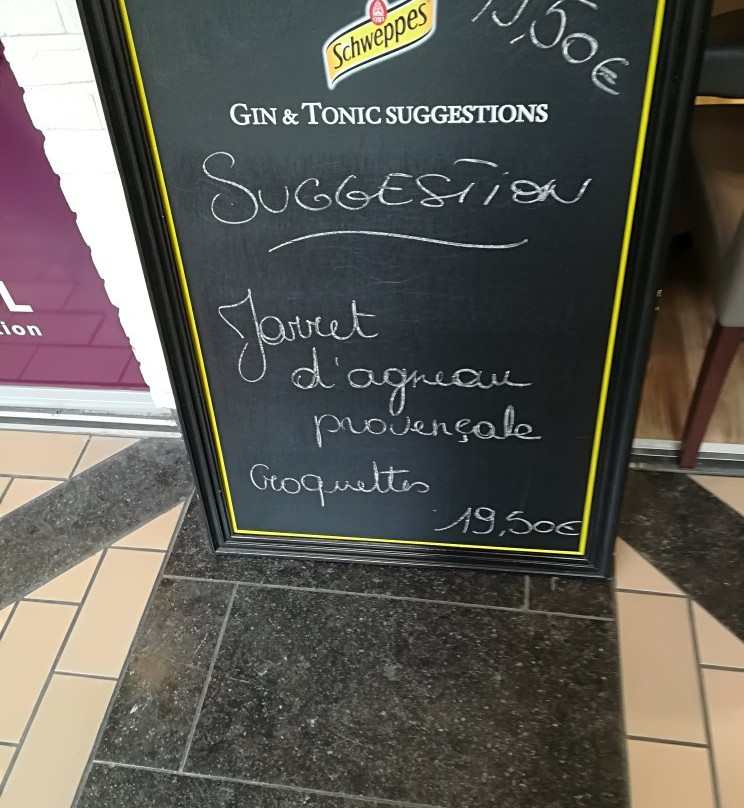 Schweppes
,50€
GIN & TONIC SUGGESTIONS
SUGGESTION
Jarret
d'agneau
provençale
Croquettes
19,50€
L
ion